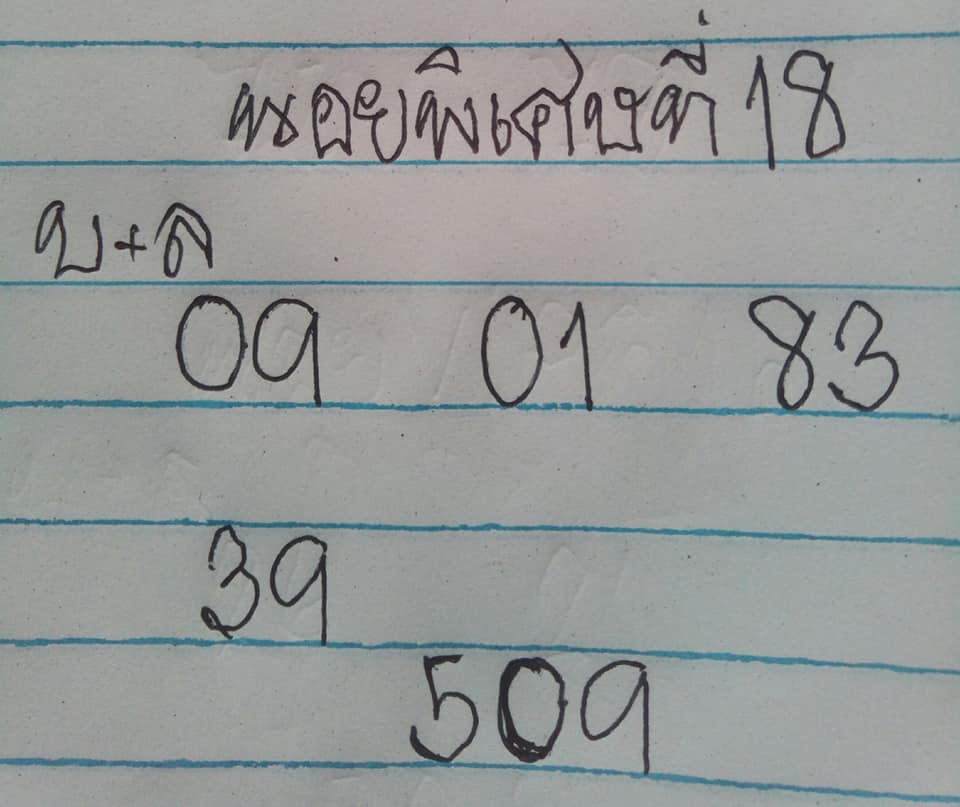 นอยพิเศษที่ 18
บ+ล
09 01 83
39
509